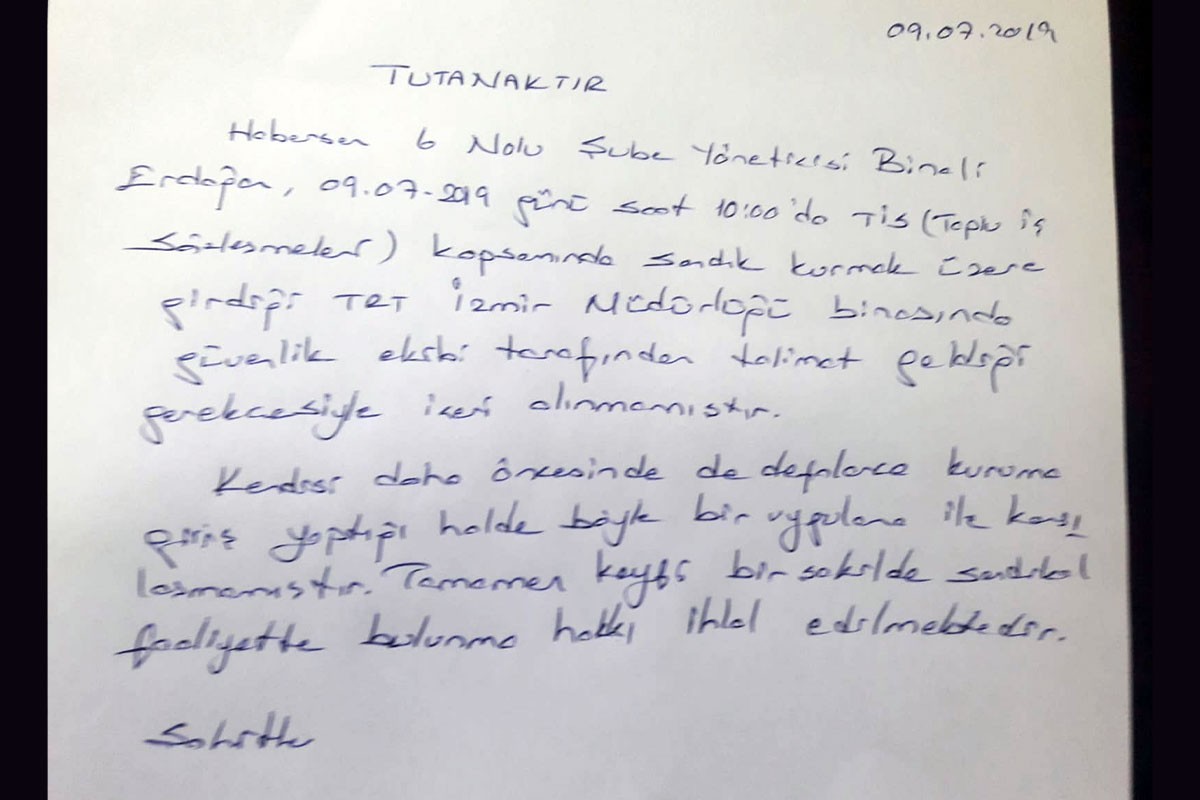 09.07.2019
TUTANAKTIR
Habersen 6 Nolu Şube Yöneticisi Binali
Erdoğan, 09.07-2019 günü saat 10:00'da TİS (Toplu iş
Sözleşmeleri) kapsamında sandık kurmak üzere
girdiği TRT İzmir Müdürlüğü binasında
güvenlik ekibi tarafından talimat geldiği
gerekçesiyle içeri alınmamıştır.
Kendisi daha öncesinde de defalarca kuruma
giriş yaptığı halde böyle bir uygulama ile karşı
laşmamıştır. Tamamen keyfi bir şekilde sendikal
faaliyette bulunma hakkı ihlal edilmektedir.
Şahitler